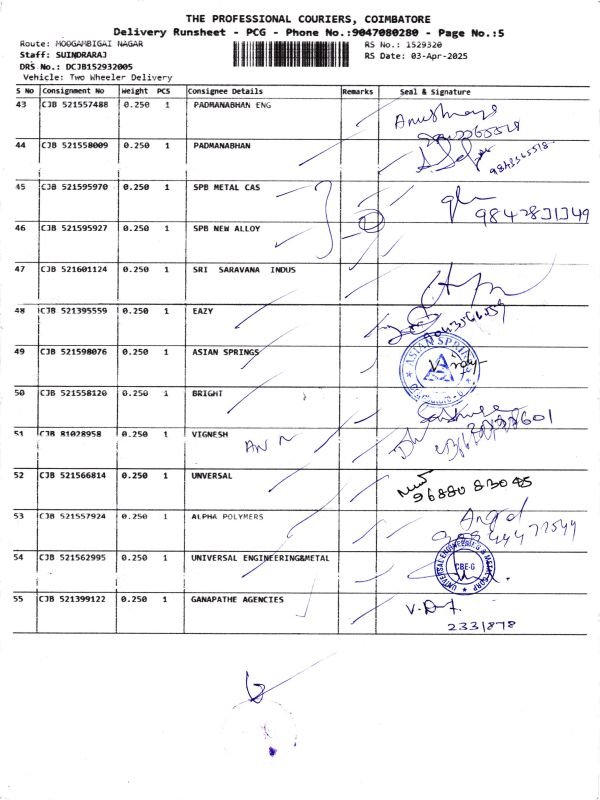 THE PROFESSIONAL COURIERS, COIMBATORE
Delivery Runsheet - PCG - Phone No.:9047080280 - Page No.:5
Route: MOOGAMBIGAI NAGAR RS No.: 1529320
Staff: SUINDRARAJ RS Date: 03-Apr-2025
DRS No.: DCJB152932005
Vehicle: Two Wheeler Delivery
S No Consignment No Weight PCS Consignee Details Remarks Seal & Signature
43 CJB 521557488 0.250 1 PADMANABHAN ENG
44 CJB 521558009 0.250 1 PADMANABHAN
9843565518
45 CJB 521595970 0.250 1 SPB METAL CAS
9842831349
46 CJB 521595927 0.250 1 SPB NEW ALLOY
47 CJB 521601124 0.250 1 SRI SARAVANA INDUS
48 CJB 521395559 0.250 1 EAZY
49 CJB 521598076 0.250 1 ASIAN SPRINGS
ASIAN SPRING
50 CJB 521558120 0.250 1 BRIGHT
51 CJB 81028958 0.250 1 VIGNESH
52 CJB 521566814 0.250 1 UNVERSAL
96880 83045
53 CJB 521557924 0.250 1 ALPHA POLYMERS
54 CJB 521562995 0.250 1 UNIVERSAL ENGINEERING&METAL
UNIVERSAL ENGINEERING & METAL CORP
CBE-6
55 CJB 521399122 0.250 1 GANAPATHE AGENCIES
2331878